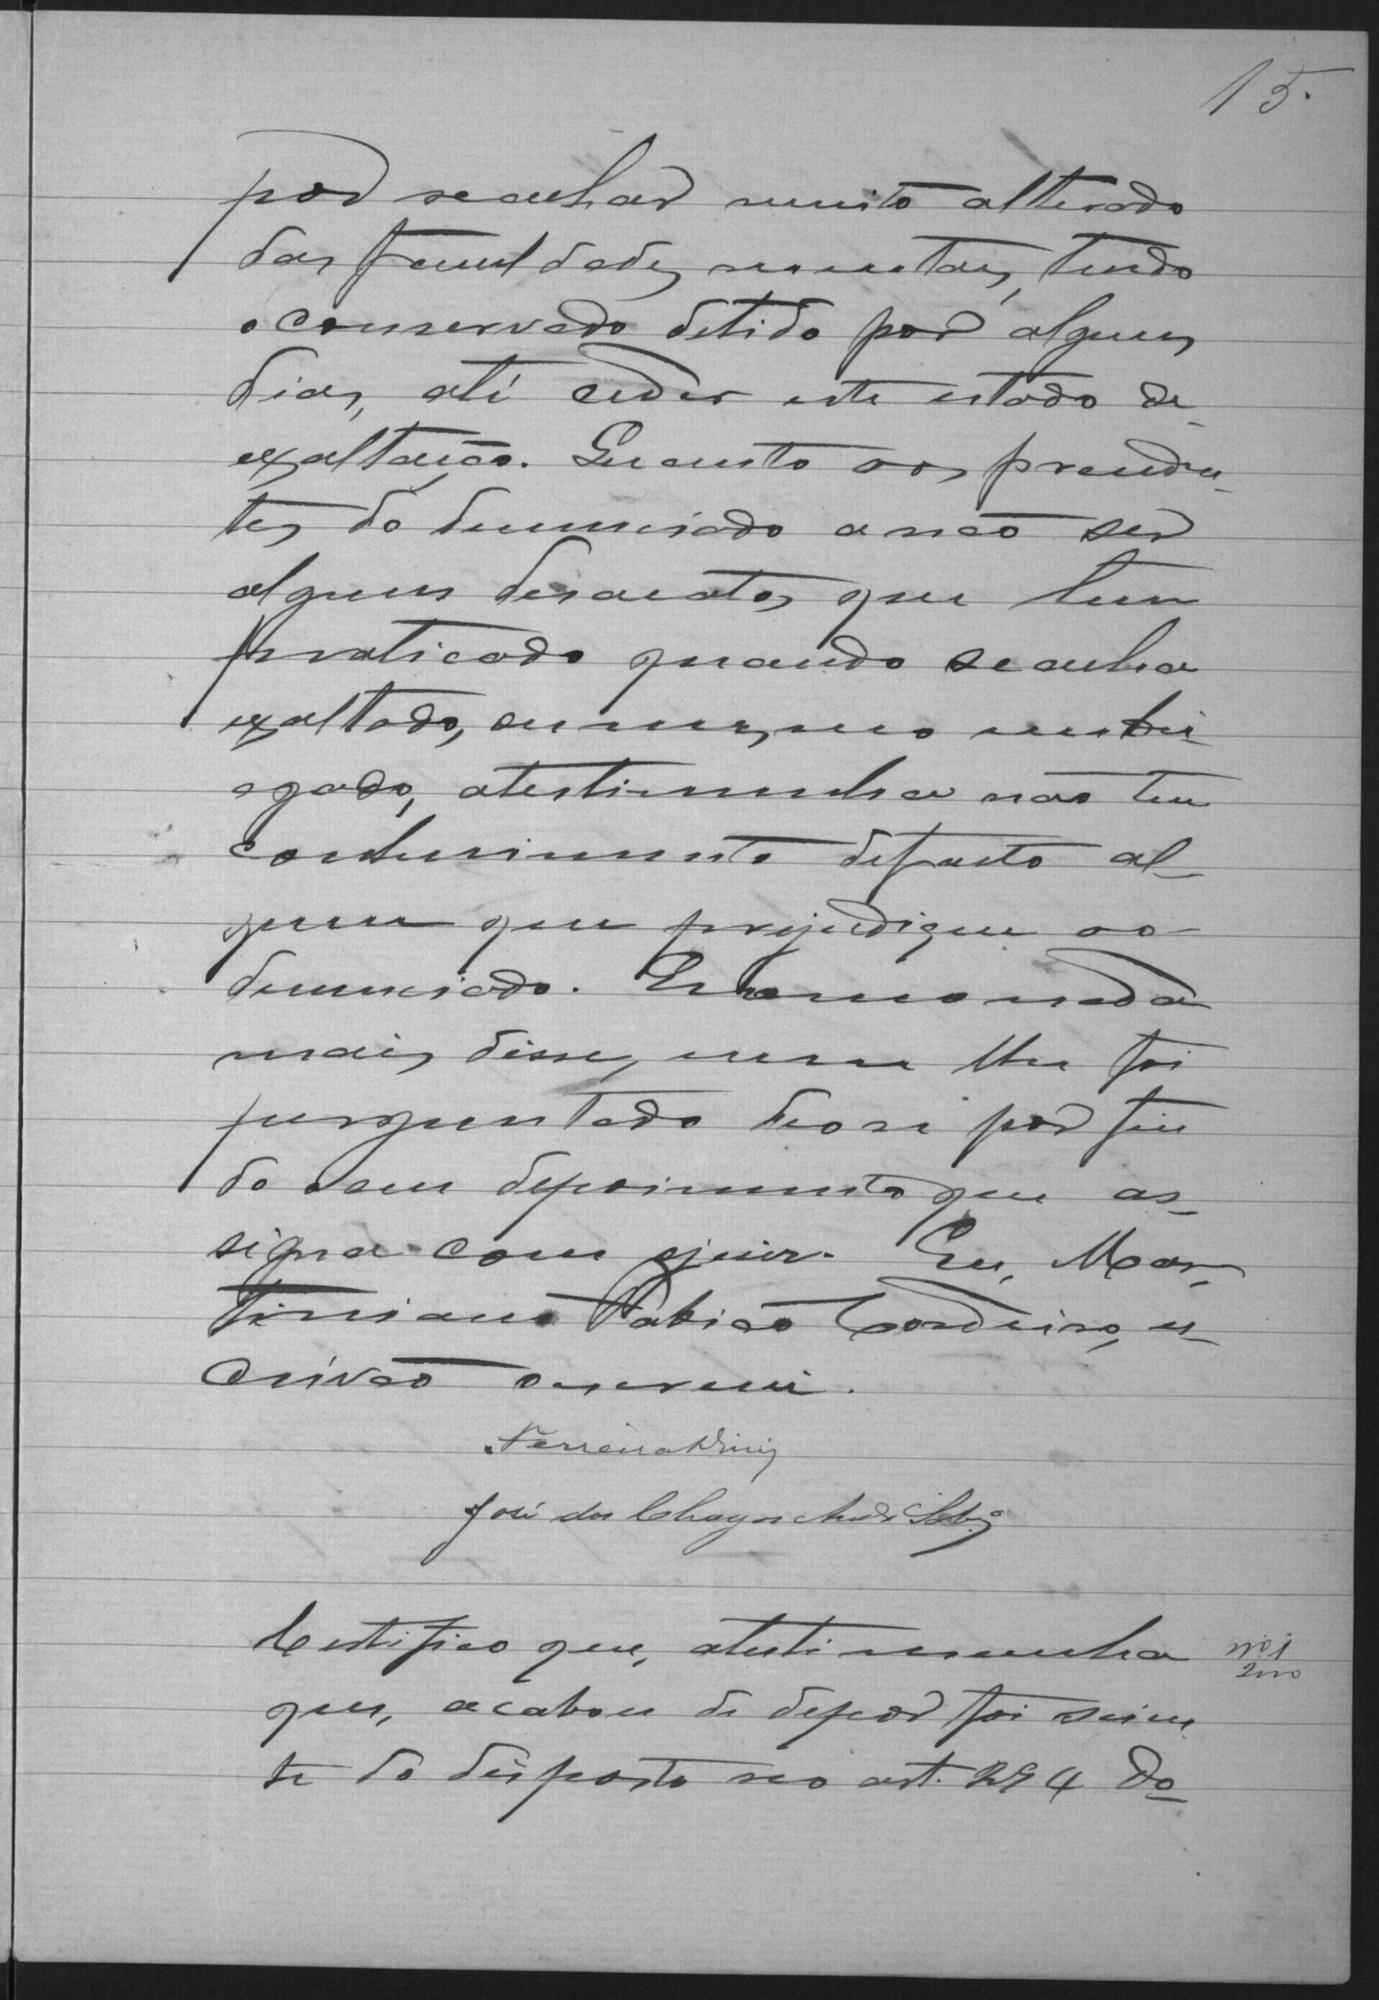 15.
por se achar muito alterado
das faculdades mentaes, tendo
o conservado detido por alguns
dias, até ceder este estado de
exaltação. Quanto aos preceden-
tes do denunciado a não ser
alguns desacatos que tem
praticado quando se acha
exaltado, ou mesmo embri-
agado, a testimunha não tem
conhecimento de facto al-
gum que prejudique ao
denunciado. E como nada
mais disse, nem lhe foi
perguntado deose por findo
do o seu depoimento que as-
signa com o juiz. Eu, Mar-
tiniano Fabião Cordeiro, es-
crivão o escrevi.
Ferreira Diniz
José das Chagas
Certifico que, a testimunha
que, acabou de depor foi scien
te do disposto no art. 294 do
nº 1
2000